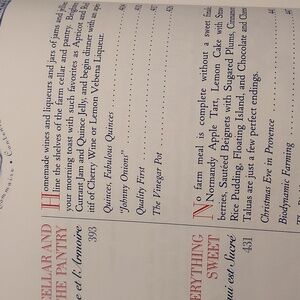 CELLAR AND
THE PANTRY
e et l'Armoire
393
Homemade wines and liqueurs and jars of jams and jellies
line the shelves of the farm cellar and pantry. Begin
your morning toast with such favorites as Apricot and Red
Currant Jam and Quince Jelly, and begin dinner with an
itif of Cherry Wine or Lemon Verbena Liqueur.
Quinces, Fabulous Quinces
"Johnny Onions"
Quality First
The Vinegar Pot
EVERYTHING
SWEET
ui est Sucré
431
No farm meal is complete without a sweet
Normandy Apple Tart, Lemon Cake with
berries, Sautéed Beignets with Sugared Plums, Cinnamon
Rice Pudding, Floating Island, and Chocolate and
Taluas are just a few perfect endings.
Christmas Eve in Provence
Biodynamic Farming